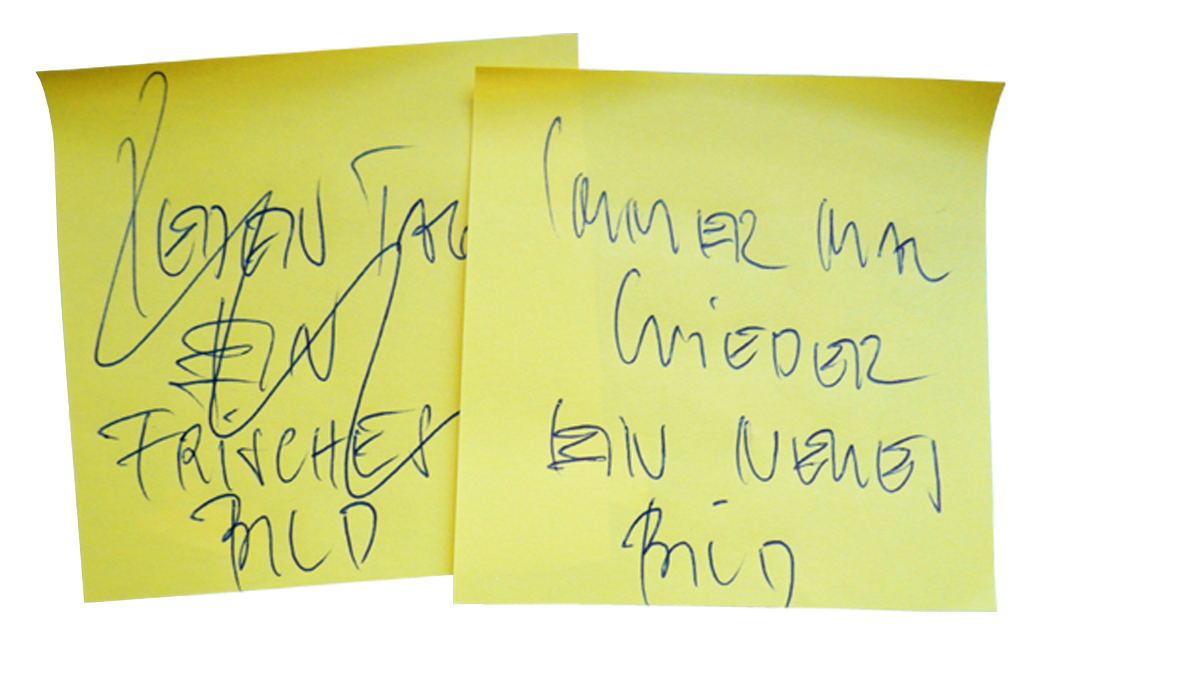 JEDEN TAG
EIN
FRISCHES
BILD
IMMER MAL
WIEDER
EIN NEUES
BILD